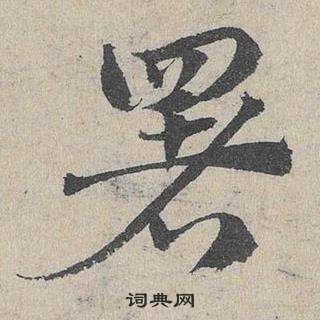 署
词典网